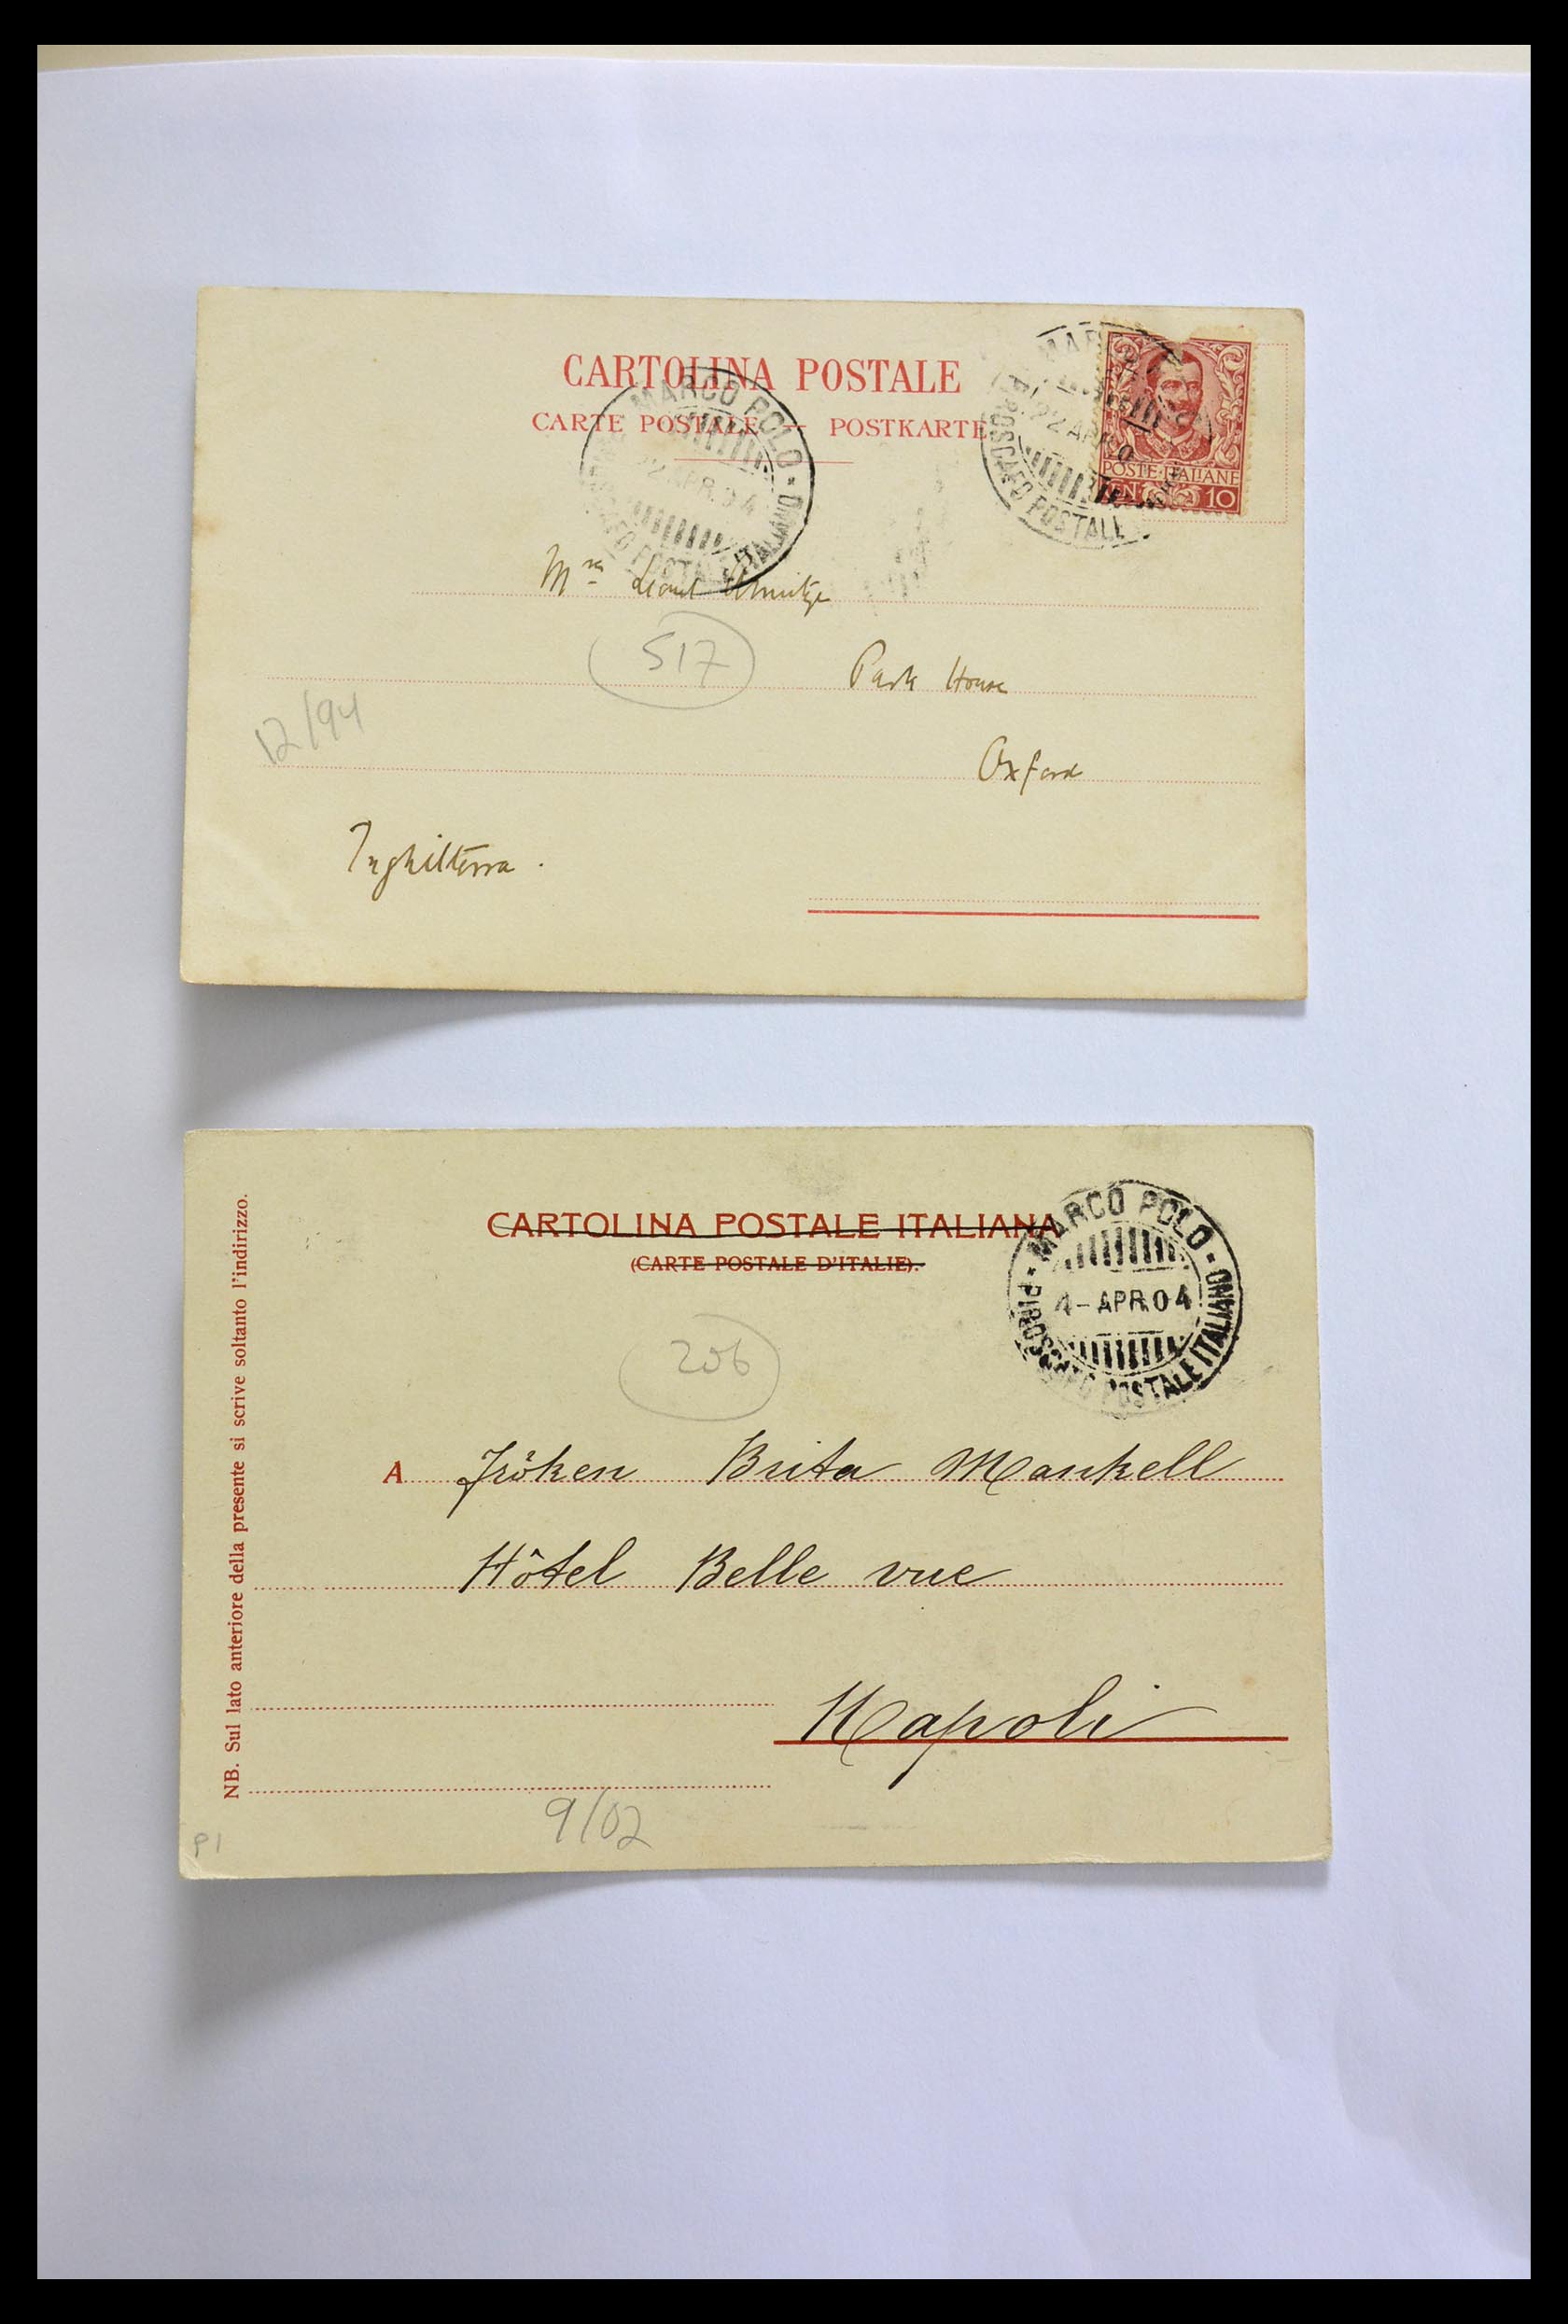 CARTOLINA POSTALE
CARTE POSTALE — POSTKARTE
MARCO POLO - PIROSCAFO POSTALE ITALIANO
22 APR.04
MARCO
PIROSCAFO POSTALE
22 APR.0
POSTE·ITALIANE
CEN. 10
Mrs Lionel
517
Park House
12/94
Oxford
Inghilterra.
CARTOLINA POSTALE ITALIANA
(CARTE POSTALE D'ITALIE).
MARCO POLO - PIROSCAFO POSTALE ITALIANO
4-APR.04
206
A Fröken Brita Mankell
Hôtel Belle vue
Napoli
9/02
P1
NB. Sul lato anteriore della presente si scrive soltanto l'indirizzo.